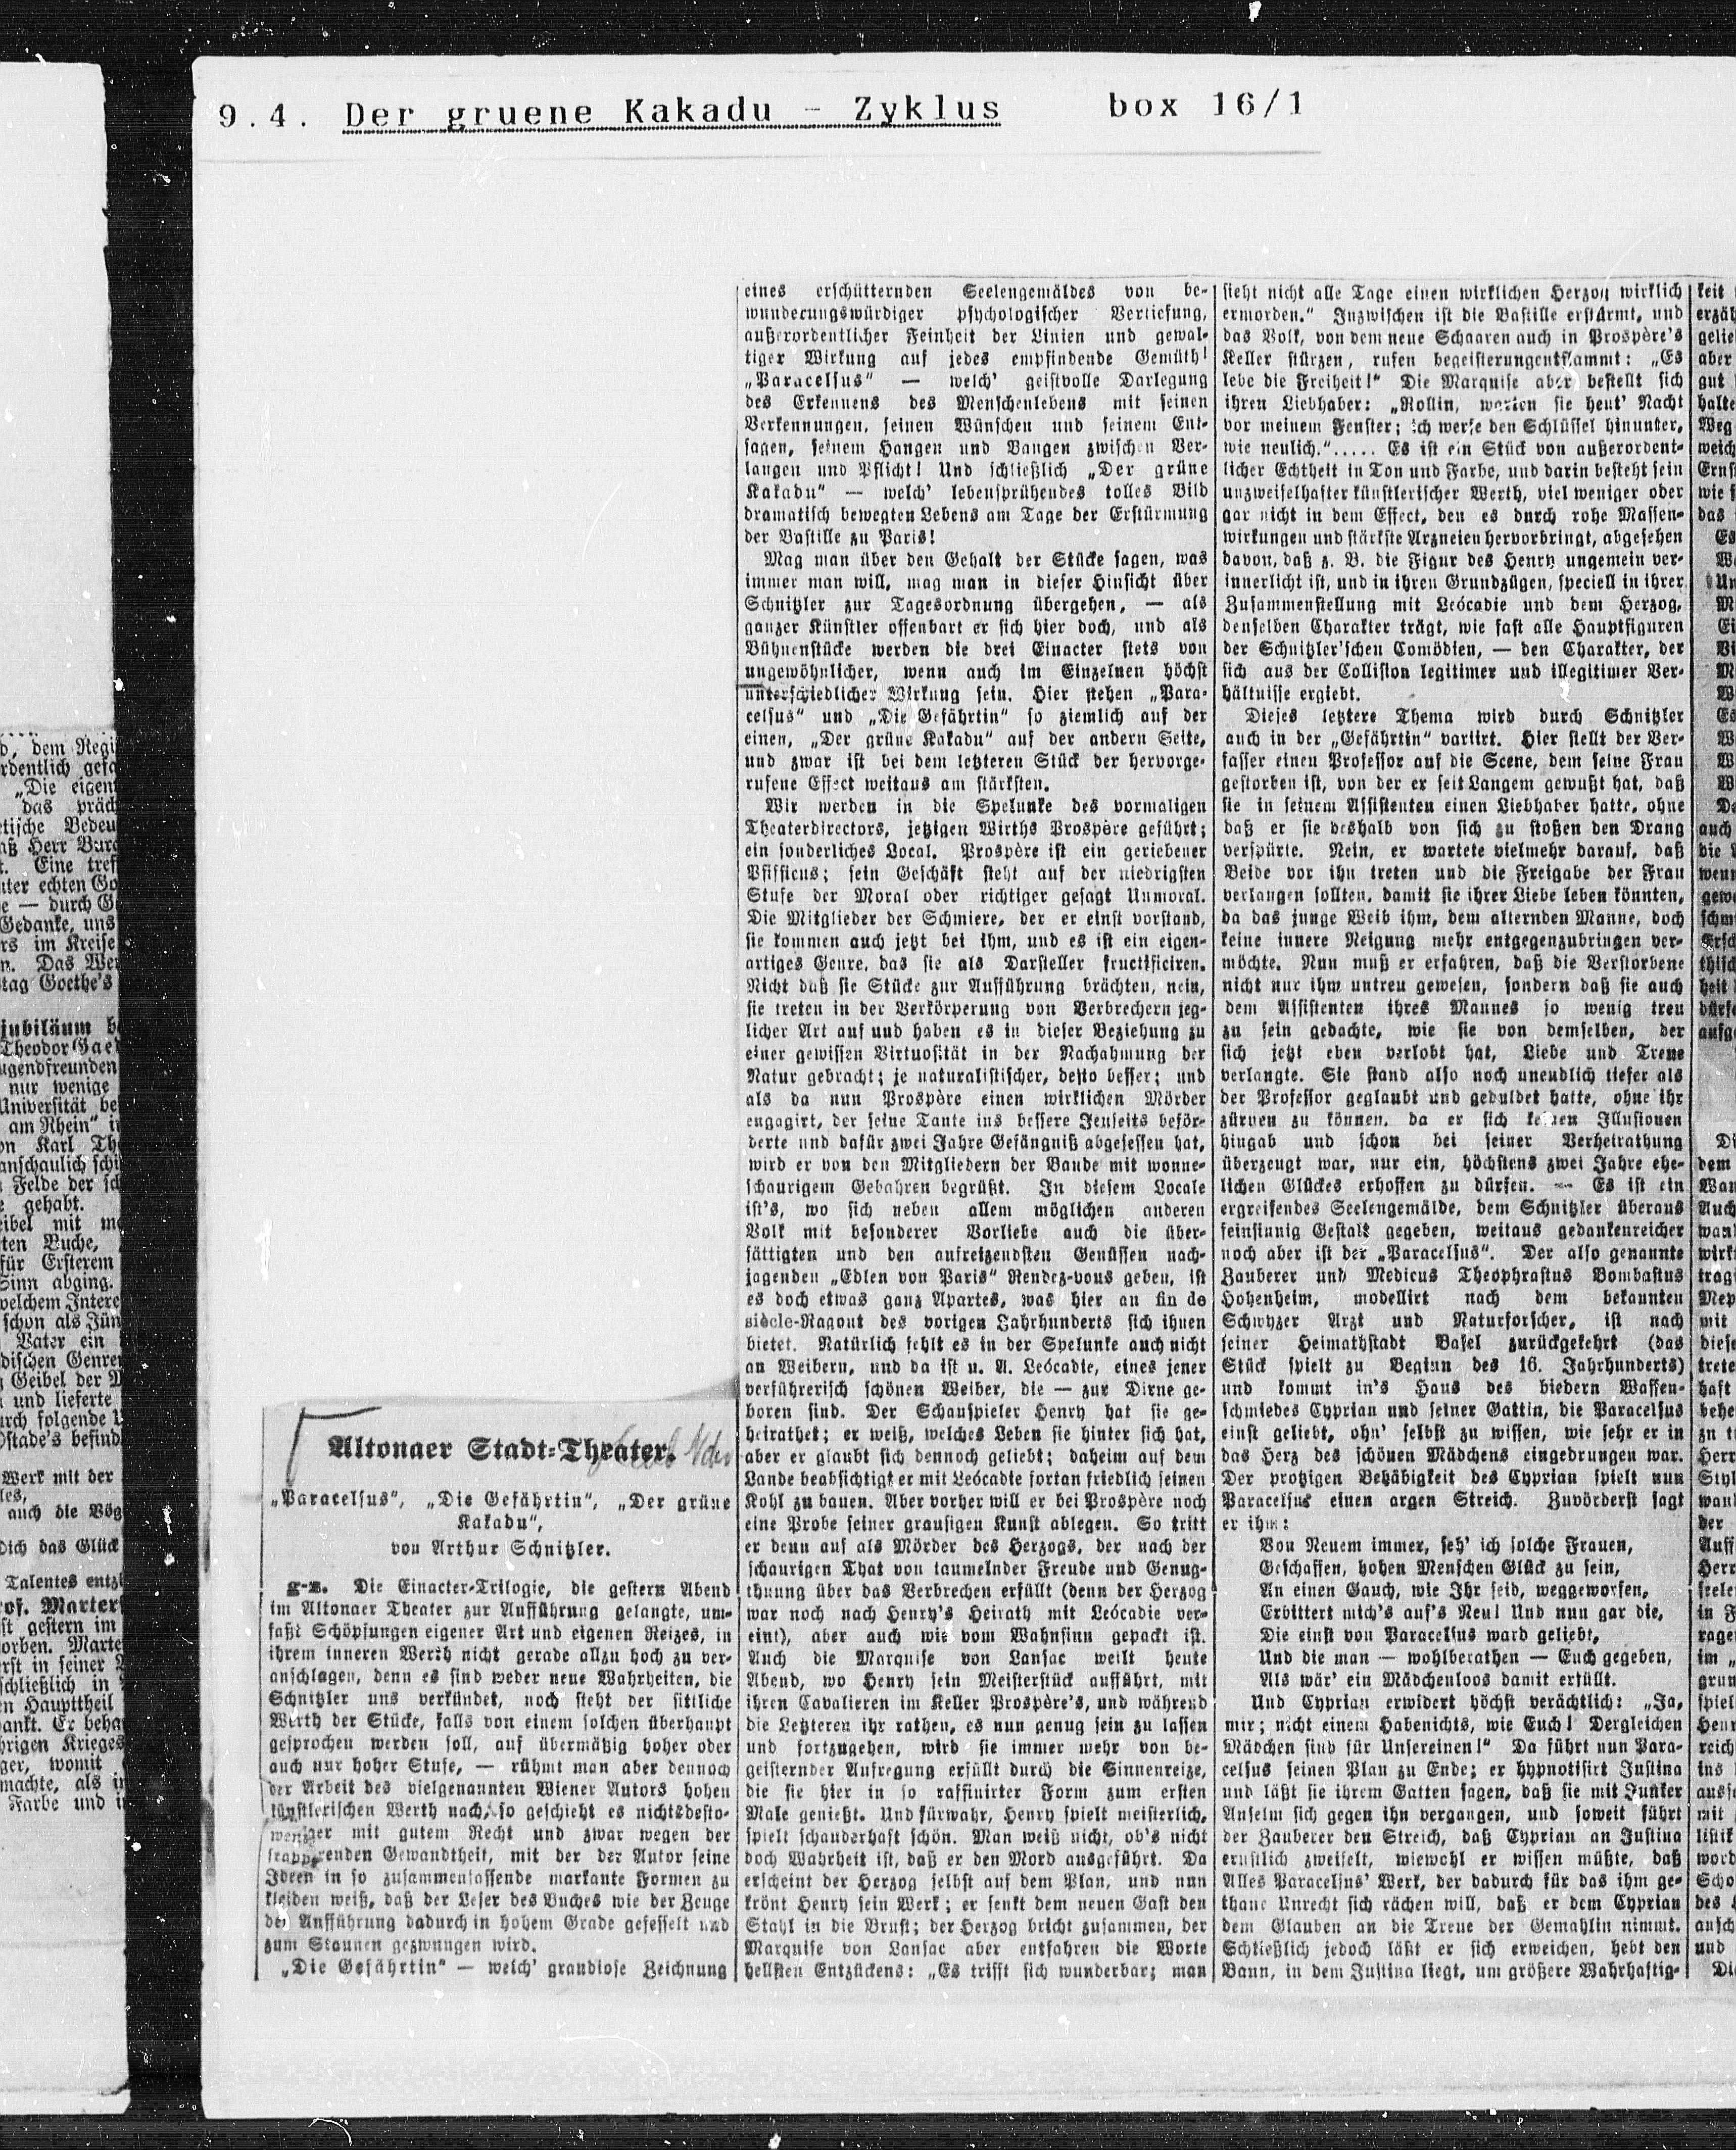 9.4. Der gruene Kakadu - Zyklus box 16/1
Altonaer Stadt-Theater.
„Paracelsus“, „Die Gefährtin“, „Der grüne
Kakadu“,
von Arthur Schnitzler.
g-z. Die Einacter-Trilogie, die gestern Abend
im Altonaer Theater zur Aufführung gelangte, um-
faßt Schöpfungen eigener Art und eigenen Reizes, in
ihrem inneren Werth nicht gerade allzu hoch zu ver-
anschlagen, denn es sind weder neue Wahrheiten, die
Schnitzler uns verkündet, noch steht der sittliche
Werth der Stücke, falls von einem solchen überhaupt
gesprochen werden soll, auf übermäßig hoher oder
auch nur hoher Stufe, — rühmt man aber dennoch
der Arbeit des vielgenannten Wiener Autors hohen
künstlerischen Werth nach, so geschieht es nichtsdesto-
weniger mit gutem Recht und zwar wegen der
frappirenden Gewandtheit, mit der der Autor seine
Ideen in so zusammenfassende markante Formen zu
kleiden weiß, daß der Leser des Buches wie der Zeuge
der Aufführung dadurch in hohem Grade gefesselt und
zum Staunen gezwungen wird.
„Die Gefährtin“ — welch' grandiose Zeichnung
eines erschütternden Seelengemäldes von be-
wunderungswürdiger psychologischer Vertiefung,
außerordentlicher Feinheit der Linien und gewal-
tiger Wirkung auf jedes empfindende Gemüth!
„Paracelsus“ — welch' geistvolle Darlegung
des Erkennens des Menschenlebens mit seinen
Verkennungen, seinen Wünschen und seinem Ent-
sagen, seinem Hangen und Bangen zwischen Ver-
langen und Pflicht! Und schließlich „Der grüne
Kakadu“ — welch' lebensprühendes tolles Bild
dramatisch bewegten Lebens am Tage der Erstürmung
der Bastille zu Paris!
Mag man über den Gehalt der Stücke sagen, was
immer man will, mag man in dieser Hinsicht über
Schnitzler zur Tagesordnung übergehen, — als
ganzer Künstler offenbart er sich hier doch, und als
Bühnenstücke werden die drei Einacter stets von
ungewöhnlicher, wenn auch im Einzelnen höchst
unterschiedlicher Wirkung sein. Hier stehen „Para-
celsus“ und „Die Gefährtin“ so ziemlich auf der
einen, „Der grüne Kakadu“ auf der andern Seite,
und zwar ist bei dem letzteren Stück der hervorge-
rufene Effect weitaus am stärksten.
Wir werden in die Spelunke des vormaligen
Theaterdirectors, jetzigen Wirths Prospère geführt;
ein sonderliches Local. Prospère ist ein geriebener
Pfifficus; sein Geschäft steht auf der niedrigsten
Stufe der Moral oder richtiger gesagt Unmoral.
Die Mitglieder der Schmiere, der er einst vorstand,
sie kommen auch jetzt bei ihm, und es ist ein eigen-
artiges Genre, das sie als Darsteller fructificiren.
Nicht daß sie Stücke zur Aufführung brächten, nein,
sie treten in der Verkörperung von Verbrechern jeg-
licher Art auf und haben es in dieser Beziehung zu
einer gewissen Virtuosität in der Nachahmung der
Natur gebracht; je naturalistischer, desto besser; und
als da nun Prospère einen wirklichen Mörder
engagirt, der seine Tante ins bessere Jenseits beför-
derte und dafür zwei Jahre Gefängniß abgesessen hat,
wird er von den Mitgliedern der Bande mit wonne-
schaurigem Gebahren begrüßt. In diesem Locale
ist's, wo sich neben allem möglichen anderen
Volk mit besonderer Vorliebe auch die über-
sättigten und den aufreizendsten Genüssen nach-
jagenden „Edlen von Paris“ Rendez-vous geben, ist
es doch etwas ganz Apartes, was hier an fin de
siècle-Ragout des vorigen Jahrhunderts sich ihnen
bietet. Natürlich fehlt es in der Spelunke auch nicht
an Weibern, und da ist u. A. Leócadie, eines jener
verführerisch schönen Weiber, die — zur Dirne ge-
boren sind. Der Schauspieler Henry hat sie ge-
heirathet; er weiß, welches Leben sie hinter sich hat,
aber er glaubt sich dennoch geliebt; daheim auf dem
Lande beabsichtigt er mit Leócadie fortan friedlich seinen
Kohl zu bauen. Aber vorher will er bei Prospère noch
eine Probe seiner grausigen Kunst ablegen. So tritt
er denn auf als Mörder des Herzogs, der nach der
schaurigen That von taumelnder Freude und Genug-
thuung über das Verbrechen erfüllt (denn der Herzog
war noch nach Henry's Heirath mit Leócadie ver-
eint), aber auch wie vom Wahnsinn gepackt ist.
Auch die Marquise von Lansac weilt heute
Abend, wo Henry sein Meisterstück aufführt, mit
ihren Cavalieren im Keller Prospère's, und während
die Letzteren ihr rathen, es nun genug sein zu lassen
und fortzugehen, wird sie immer mehr von be-
geisternder Aufregung erfüllt durch die Sinnenreize,
die sie hier in so raffinirter Form zum ersten
Male genießt. Und fürwahr, Henry spielt meisterlich,
spielt schauderhaft schön. Man weiß nicht, ob's nicht
doch Wahrheit ist, daß er den Mord ausgeführt. Da
erscheint der Herzog selbst auf dem Plan, und nun
krönt Henry sein Werk; er senkt dem neuen Gast den
Stahl in die Brust; der Herzog bricht zusammen, der
Marquise von Lansac aber entfahren die Worte
hellsten Entzückens: „Es trifft sich wunderbar; man
sieht nicht alle Tage einen wirklichen Herzog wirklich
ermorden.“ Inzwischen ist die Bastille erstürmt, und
das Volk, von dem neue Schaaren auch in Prospère's
Keller stürzen, rufen begeisterungentflammt: „Es
lebe die Freiheit!“ Die Marquise aber bestellt sich
ihren Liebhaber: „Rollin, warten sie heut' Nacht
vor meinem Fenster; ich werfe den Schlüssel hinunter,
wie neulich.“..... Es ist ein Stück von außerordent-
licher Echtheit in Ton und Farbe, und darin besteht sein
unzweifelhafter künstlerischer Werth, viel weniger oder
gar nicht in dem Effect, den es durch rohe Massen-
wirkungen und stärkste Arzneien hervorbringt, abgesehen
davon, daß z. B. die Figur des Henry ungemein ver-
innerlicht ist, und in ihren Grundzügen, speciell in ihrer
Zusammenstellung mit Leócadie und dem Herzog,
denselben Charakter trägt, wie fast alle Hauptfiguren
der Schnitzler'schen Comödien, — den Charakter, der
sich aus der Collision legitimer und illegitimer Ver-
hältnisse ergiebt.
Dieses letztere Thema wird durch Schnitzler
auch in der „Gefährtin“ variirt. Hier stellt der Ver-
fasser einen Professor auf die Scene, dem seine Frau
gestorben ist, von der er seit Langem gewußt hat, daß
sie in seinem Assistenten einen Liebhaber hatte, ohne
daß er sie deshalb von sich zu stoßen den Drang
verspürte. Nein, er wartete vielmehr darauf, daß
Beide vor ihn treten und die Freigabe der Frau
verlangen sollten, damit sie ihrer Liebe leben könnten,
da das junge Weib ihm, dem alternden Manne, doch
keine innere Neigung mehr entgegenzubringen ver-
möchte. Nun muß er erfahren, daß die Verstorbene
nicht nur ihm untreu gewesen, sondern daß sie auch
dem Assistenten ihres Mannes so wenig treu
zu sein gedachte, wie sie von demselben, der
sich jetzt eben verlobt hat, Liebe und Treue
verlangte. Sie stand also noch unendlich tiefer als
der Professor geglaubt und geduldet hatte, ohne ihr
zürnen zu können, da er sich keinen Illusionen
hingab und schon bei seiner Verheirathung
überzeugt war, nur ein, höchstens zwei Jahre ehe-
lichen Glückes erhoffen zu dürfen. — Es ist ein
ergreifendes Seelengemälde, dem Schnitzler überaus
feinsinnig Gestalt gegeben, weitaus gedankenreicher
noch aber ist der „Paracelsus“. Der also genannte
Zauberer und Medicus Theophrastus Bombastus
Hohenheim, modellirt nach dem bekannten
Schwyzer Arzt und Naturforscher, ist nach
seiner Heimathstadt Basel zurückgekehrt (das
Stück spielt zu Beginn des 16. Jahrhunderts)
und kommt in's Haus des biedern Waffen-
schmiedes Cyprian und seiner Gattin, die Paracelsus
einst geliebt, ohn' selbst zu wissen, wie sehr er in
das Herz des schönen Mädchens eingedrungen war.
Der protzigen Behäbigkeit des Cyprian spielt nun
Paracelsus einen argen Streich. Zuvörderst sagt
er ihm:
Von Neuem immer, seh' ich solche Frauen,
Geschaffen, hohen Menschen Glück zu sein,
An einen Gauch, wie Ihr seid, weggeworfen,
Erbittert mich's auf's Neu! Und nun gar die,
Die einst von Paracelsus ward geliebt,
Und die man — wohlberathen — Euch gegeben,
Als wär' ein Mädchenloos damit erfüllt.
Und Cyprian erwidert höchst verächtlich: „Ja,
mir; nicht einem Habenichts, wie Euch! Dergleichen
Mädchen sind für Unsereinen!“ Da führt nun Para-
celsus seinen Plan zu Ende; er hypnotisirt Justina
und läßt sie ihrem Gatten sagen, daß sie mit Junker
Anselm sich gegen ihn vergangen, und soweit führt
der Zauberer den Streich, daß Cyprian an Justina
ernstlich zweifelt, wiewohl er wissen müßte, daß
Alles Paracelsus' Werk, der dadurch für das ihm ge-
thane Unrecht sich rächen will, daß er dem Cyprian
dem Glauben an die Treue der Gemahlin nimmt.
Schließlich jedoch läßt er sich erweichen, hebt den
Bann, in dem Justina liegt, um größere Wahrhaftig-